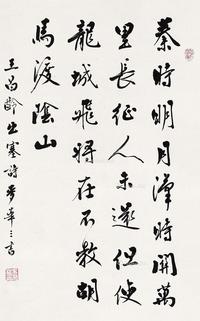 秦時明月漢時關萬
里長征人未還但使
龍城飛將在不教胡
馬渡陰山
王昌齡出塞詩